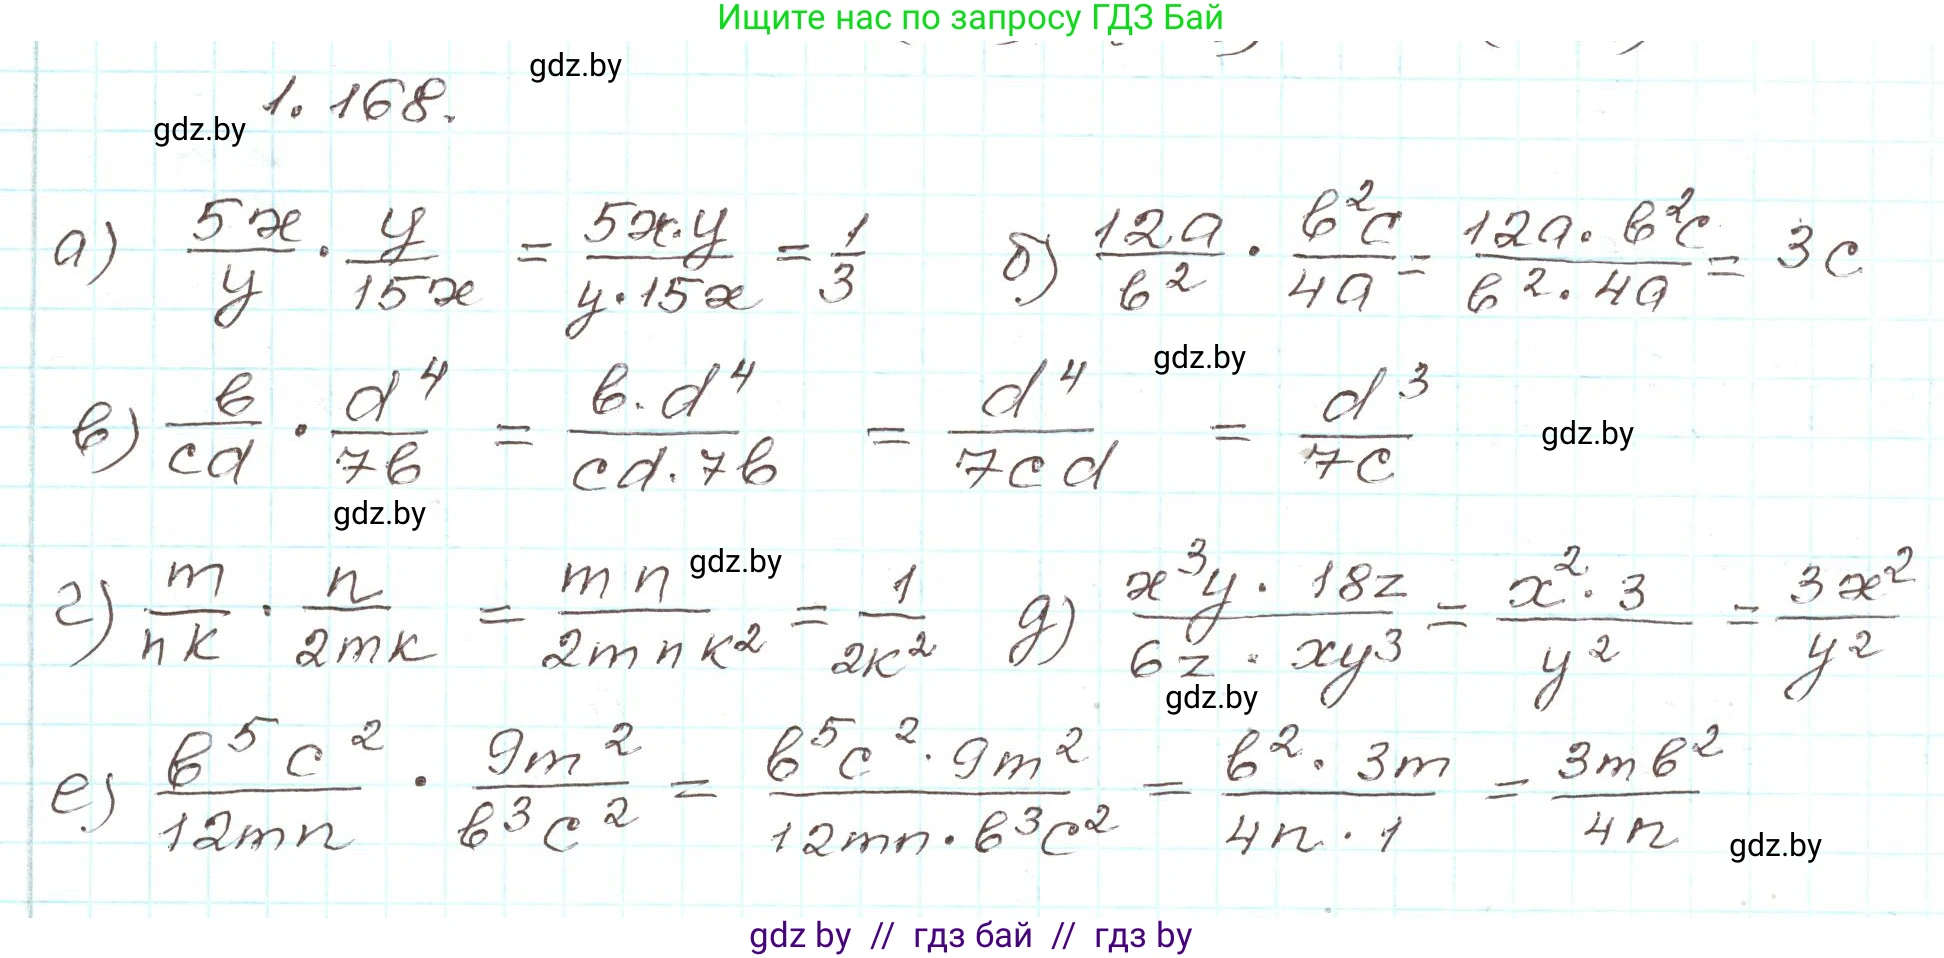 Ищите нас по запросу ГДЗ Бай
gdz.by
1.168.
gdz.by
а) 5x/y · y/15x = 5x·y/y·15x = 1/3 б) 12a/b² · b²c/4a = 12a·b²c/b²·4a = 3c
gdz.by
в) b/cd · d⁴/7b = b·d⁴/cd·7b = d⁴/7cd = d³/7c gdz.by
gdz.by
gdz.by
г) m/nk · n/2mk = mn/2mnk² = 1/2k² д) x³y·18z/6z·xy³ = x²·3/y² = 3x²/y²
gdz.by
е) b⁵c²/12mn · 9m²/b³c² = b⁵c²·9m²/12mn·b³c² = b²·3m/4n·1 = 3mb²/4n
gdz.by
gdz by // гдз бай // гдз by